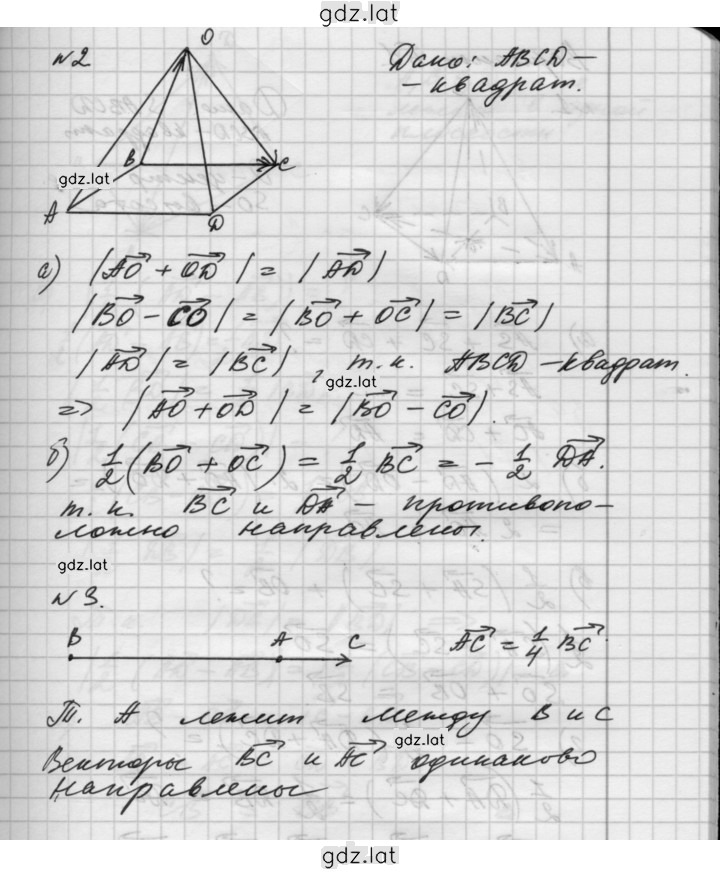 gdz.lat
№2
O
Дано: ABCD –
– квадрат.
B
C
gdz.lat
A
D
а) |AO + OD| = |AD|
|BO – CO| = |BO + OC| = |BC|
|AD| = |BC|, т.к. ABCD – квадрат.
gdz.lat
=> |AO + OD| = |BO – CO|.
б) 1/2 (BO + OC) = 1/2 BC = – 1/2 DA.
т.к. BC и DA – противопо–
ложно направлены.
gdz.lat
№3.
B A C AC = 1/4 BC
Т. А лежит между В и С
gdz.lat
Векторы BC и AC одинаково
направлены
gdz.lat